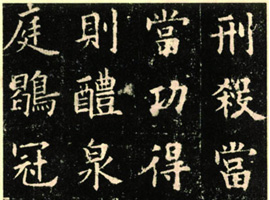 刑殺當
當功得
則醴泉
庭鶡冠